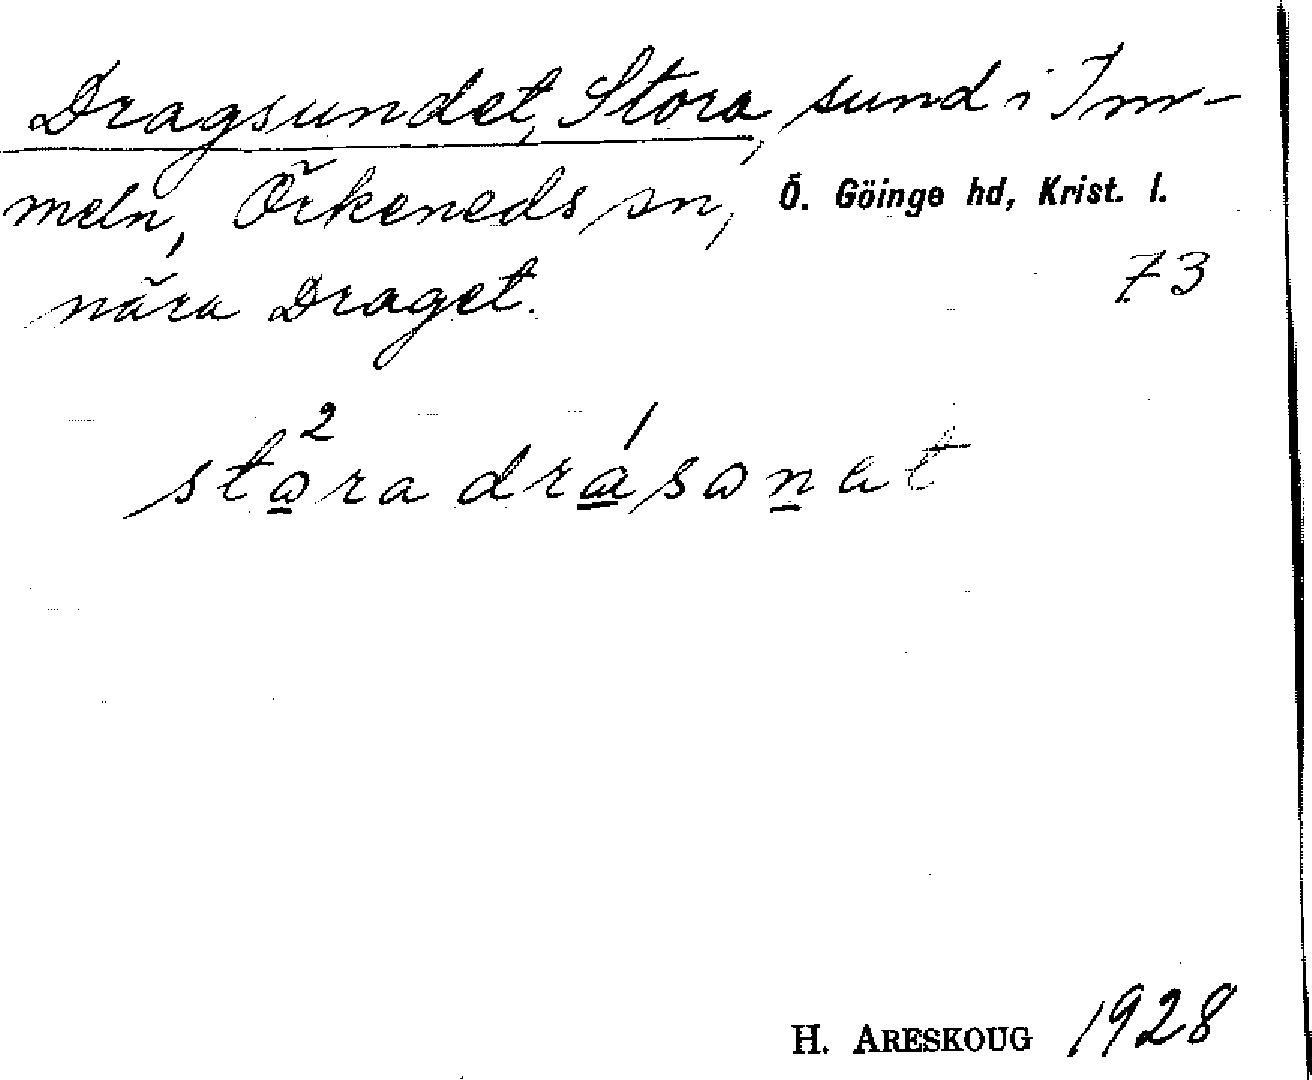 Dragsundet, Stora, sund i Im-
meln, Örkeneds sn, Ö. Göinge hd, Krist. l.
nära Draget. 73
2 /
stora drasonat
H. ARESKOUG 1928